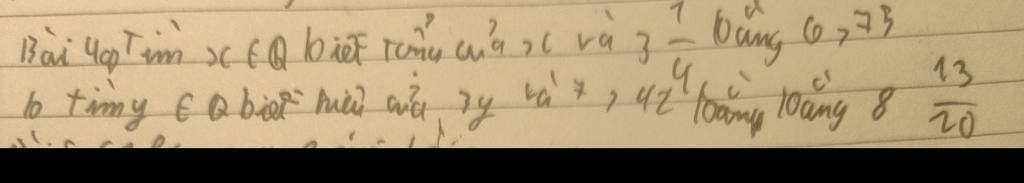 Bài 4a Tìm x ∈ Q biết tổng của x và 3 1/4 bằng 6,75
b tìm y ∈ Q biết hiệu của y và 7,42 bằng bằng 8 13/20